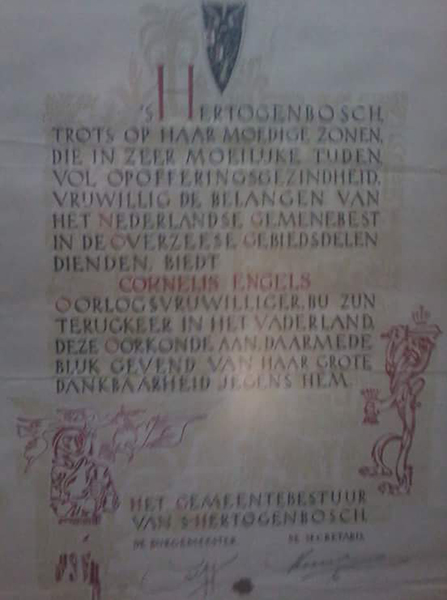 'S HERTOGENBOSCH,
TROTS OP HAAR MOEDIGE ZONEN,
DIE IN ZEER MOEILIJKE TIJDEN,
VOL OPOFFERINGSGEZINDHEID,
VRIJWILLIG DE BELANGEN VAN
HET NEDERLANDSE GEMENEBEST
IN DE OVERZEESE GEBIEDSDELEN
DIENDEN, BIEDT
CORNELIS ENGELS
OORLOGSVRIJWILLIGER, BIJ ZIJN
TERUGKEER IN HET VADERLAND,
DEZE OORKONDE AAN, DAARMEDE
BLIJK GEVEND VAN HAAR GROTE
DANKBAARHEID JEGENS HEM.
HET GEMEENTEBESTUUR
VAN 'S HERTOGENBOSCH
DE BURGEMEESTER DE SECRETARIS